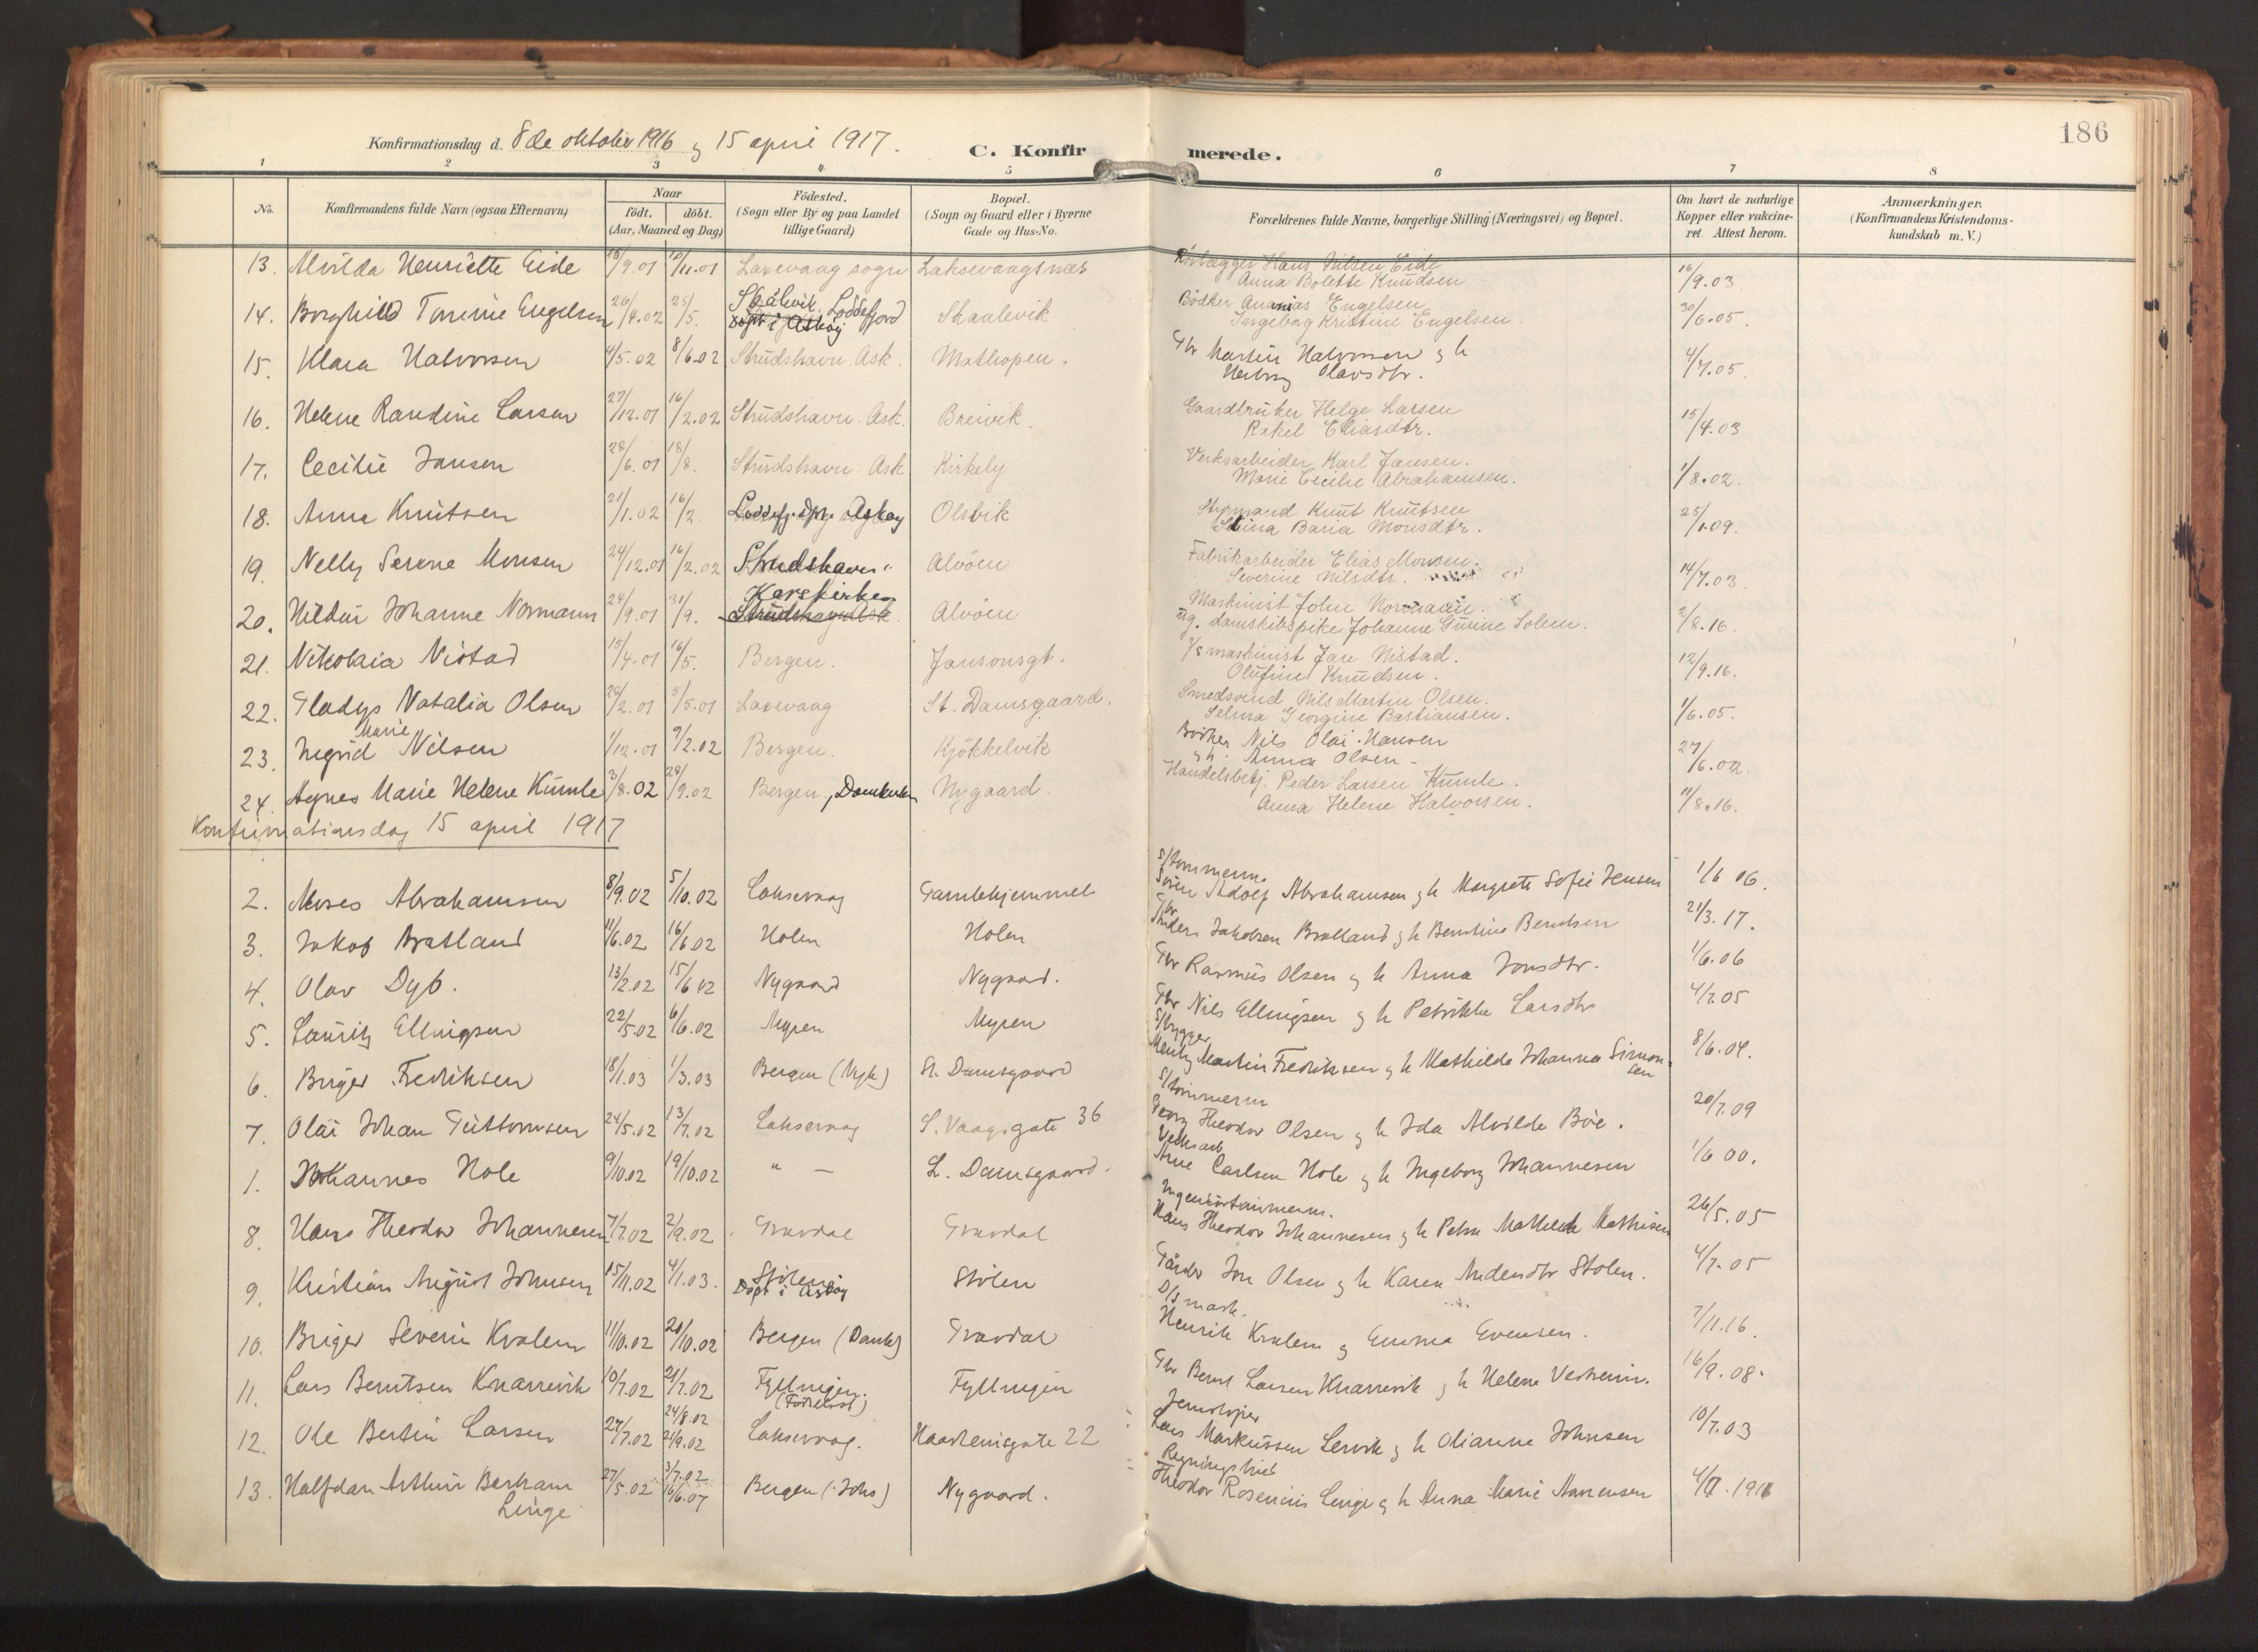 186
Konfirmationsdag d. 8de oktober 1916 og 15 april 1917.
C. Konfirmerede.
1 2 3 4 5 6 7 8
No. Konfirmandens fulde Navn (ogsaa Efternavn) Naar födt. döbt. (Aar, Maaned og Dag) Födested. (Sogn eller By og paa Landet tillige Gaard) Bopæl. (Sogn og Gaard eller i Byerne Gade og Hus-No. Forældrenes fulde Navne, borgerlige Stilling (Næringsvei) og Bopæl. Om havt de naturlige Kopper eller vakcineret. Attest herom. Anmærkninger. (Konfirmandens Kristendomskundskab m. V.)
13. Alvilda Henriette Eide 18/9.01 10/11.01 Laxevaag sogn Laksevaagsnæs Hans Nilsen Eide 16/9.03
Anna Bolette Knudsen
14. Borghild Engelsen 26/4.02 25/5. Skålvik, Loddefjord Skaalevik Bödker Ananias Engelsen 30/6.05.
Døpt i Askøy Ingeborg Kristine Engelsen
15. Klara Halvorsen 4/5.02 8/6.02 Strudshavn. Ask. Mathopen. Gbr Martin Halvorsen og h 4/7.05.
Herborg Olavsdtr.
16. Helene Randine Larsen 27/12.01 16/2.02 Strudshavn. Ask. Breivik. Gaardbruker Helge Larsen 15/4.03
Rakel Eliasdtr.
17. Cecilie Jansen 28/6.01 18/8. Strudshavn. Ask Kirkely Verksarbeider Karl Jansen. 1/8.02.
Marie Cecilie Abrahamsen.
18. Anna Knutsen 21/1.02 16/2 Askøy Olsvik Styrmand Knut Knutsen 25/1.09.
Stina Baria Monsdtr.
19. Nelly Serene Monsen 24/12.01 16/2.02 Strudshavn Alvöen Fabrikarbeider Elias Monsen. 14/7.03.
Severine Nilsdtr.
20. Hildur Johanne Normann 24/9.01 31/9. Korskirken Alvöen Maskinist John Normann. 2/8.16.
Strudshavn Ask. ug. damskibspike Johanne Gurine Solem.
21. Nikolaia Nistad 15/4.01 16/5. Bergen. Jansonsgt. maskinist Jan Nistad. 12/9.16.
Olufine Knudsen.
22. Gladys Natalia Olsen 28/2.01 5/5.01 Laxevaag St. Damsgaard. Smedsvend Nils Martin Olsen. 1/6.05.
Selma Georgine Bastiansen.
23. Ingrid Marie Nilsen 1/12.01 9/2.02 Bergen. Kjökkelvik Bödker Nils Olai Hansen 27/6.02.
og h. Anna Olsen
24. Agnes Marie Helene Kumle 3/8.02 28/9.02 Bergen, Domkirken Nygaard. Handelsbetj. Peder Larsen Kumle. 11/8.16.
Anna Helene Halvorsen.
Konfirmationsdag 15 april 1917
2. Moses Abrahamsen 8/9.02 5/10.02 Laksevaag Gamlehjemmet S/tömmerm. Adolf Abrahamsen og h Margrete Sofie Jensen 1/6 06.
3. Jakob Bratland 11/6.02 16/6.02 Holen Holen Gbr Anders Jakobsen Bratland og h Berntine Berntsen 21/3.17.
4. Olav Dyb. 13/2.02 15/6 02 Nygaard Nygaard. Gbr Rasmus Olsen og h Anna Jonsdtr. 1/6.06
5. Lauritz Ellingsen 22/5.02 6/6.02 Myren Myren Gbr Nils Ellingsen og h Petrikke Larsdtr 4/7.05
6. Birger Fredriksen 18/1.03 1/3.03 Bergen (Nyk) St. Damsgaard S/bygger Martin Fredriksen og h Mathilde Johanna Simonsen 8/6.04.
7. Olai Johan Guttormsen 24/5.02 13/7.02 Laksevaag S. Vaagsgate 36 S/tömmerm Georg Theodor Olsen og h Ida Alvilde Böe. 20/7.09
1. Johannes Hole 9/10.02 19/10.02 " — L. Damsgaard. Verksarb Arne Carlsen Hole og h Ingeborg Johannesen 1/6 00.
8. Hans Theodor Johannesen 7/7.02 2/9.02 Gravdal Gravdal Hans Theodor Johannesen og h Petra Mathilde Mathisen 26/5.05
9. Kristian August Johnsen 15/11.02 4/1.03. Stölen Stölen Gårdbr Jon Olsen og h Karen Andersdtr Stölen. 4/7.05
Döpt i Askøy
10. Birger Severin Kvalem 11/10.02 20/10.02 Bergen (Domk) Gravdal D/s mask. Henrik Kvalem og Emma Evensen. 7/11.16.
11. Lars Berntsen Knarrevik 10/7.02 21/7.02 Fyllingen. Fyllingen Gbr Bernt Larsen Knarrevik og h Helene Vestheim. 16/9.08.
(Födselsst)
12. Ole Bertin Larsen 27/7.02 24/8.02 21/9.02 Laksevaag. Haakensgate 22 Jernstöper Lars Markussen Lervik og h Olianne Johnsen 10/7.03
13. Halfdan Arthur Bertram Linge 27/5.02 3/7.02 16/6.07 Bergen (Johs) Nygaard. Theodor Rosenius Linge og h Anna Marie 4/7.1916